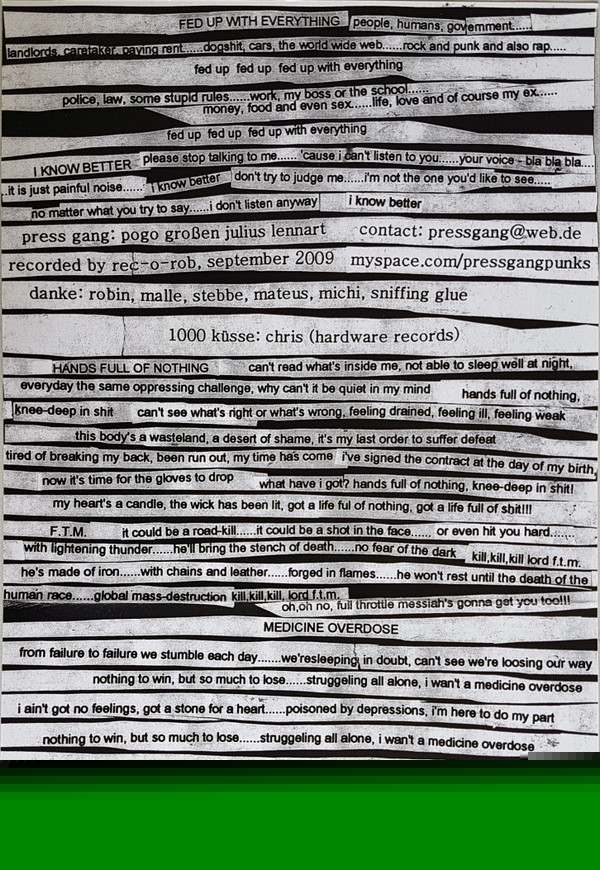 FED UP WITH EVERYTHING people, humans, government......
landlords, caretaker, paying rent......dogshit, cars, the world wide web......rock and punk and also rap.....
fed up fed up fed up with everything
police, law, some stupid rules......work, my boss or the school......
money, food and even sex......life, love and of course my ex......
fed up fed up fed up with everything
I KNOW BETTER please stop talking to me...... 'cause i can't listen to you......your voice - bla bla bla....
..it is just painful noise...... i know better don't try to judge me......i'm not the one you'd like to see.....
no matter what you try to say......i don't listen anyway i know better
press gang: pogo großen julius lennart contact: pressgang@web.de
recorded by rec-o-rob, september 2009 myspace.com/pressgangpunks
danke: robin, malle, stebbe, mateus, michi, sniffing glue
1000 küsse: chris (hardware records)
HANDS FULL OF NOTHING can't read what's inside me, not able to sleep well at night,
everyday the same oppressing challenge, why can't it be quiet in my mind hands full of nothing,
knee-deep in shit can't see what's right or what's wrong, feeling drained, feeling ill, feeling weak
this body's a wasteland, a desert of shame, it's my last order to suffer defeat
tired of breaking my back, been run out, my time has come i've signed the contract at the day of my birth,
now it's time for the gloves to drop what have i got? hands full of nothing, knee-deep in shit!
my heart's a candle, the wick has been lit, got a life ful of nothing, got a life full of shit!!!
F.T.M. it could be a road-kill......it could be a shot in the face...... or even hit you hard.......
with lightening thunder......he'll bring the stench of death......no fear of the dark kill,kill,kill lord f.t.m.
he's made of iron......with chains and leather......forged in flames......he won't rest until the death of the
human race......global mass-destruction kill,kill,kill, lord f.t.m.
oh,oh no, full throttle messiah's gonna get you too!!!
MEDICINE OVERDOSE
from failure to failure we stumble each day.......we'resleeping in doubt, can't see we're loosing our way
nothing to win, but so much to lose......struggeling all alone, i wan't a medicine overdose
i ain't got no feelings, got a stone for a heart......poisoned by depressions, i'm here to do my part
nothing to win, but so much to lose......struggeling all alone, i wan't a medicine overdose